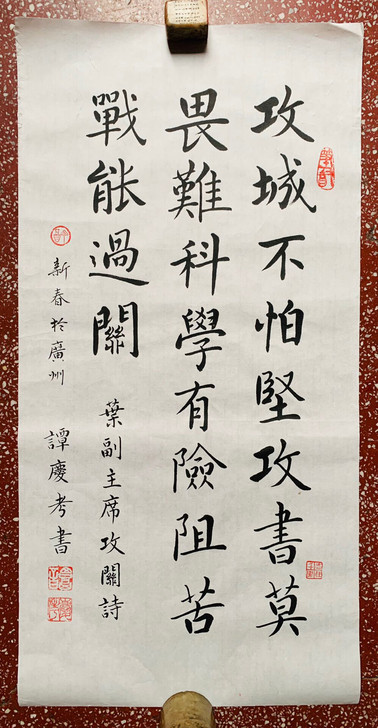 攻城不怕堅攻書莫
畏難科學有險阻苦
戰能過關
葉副主席攻關詩
新春於廣州 譚慶考書